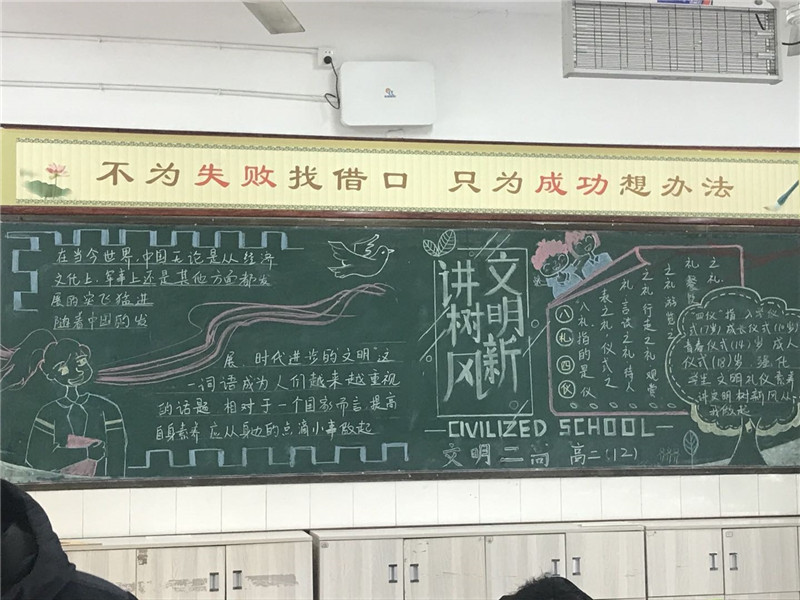 不为失败找借口 只为成功想办法
在当今世界,中国无论是从经济
文化上,军事上还是其他方面都发
展的突飞猛进
随着中国的发
展,时代进步的"文明"这
一词语成为人们越来越重视
的话题,相对于一个国家而言,提高
自身素养应从身边的点滴小事做起
讲文明
树新风
CIVILIZED SCHOOL
文明二尚 高二(12)
八礼四仪
八礼指的是仪
表之礼 仪式之
礼 言谈之礼 待人
之礼 行走之礼 观赏
之礼 游览之
礼 餐饮
之礼
"四仪"指 入学仪
式(7岁) 成长仪式(10岁)
青春仪式(14岁) 成人
仪式(18岁) 强化
学生文明礼仪素养
讲文明树新风从
我做起